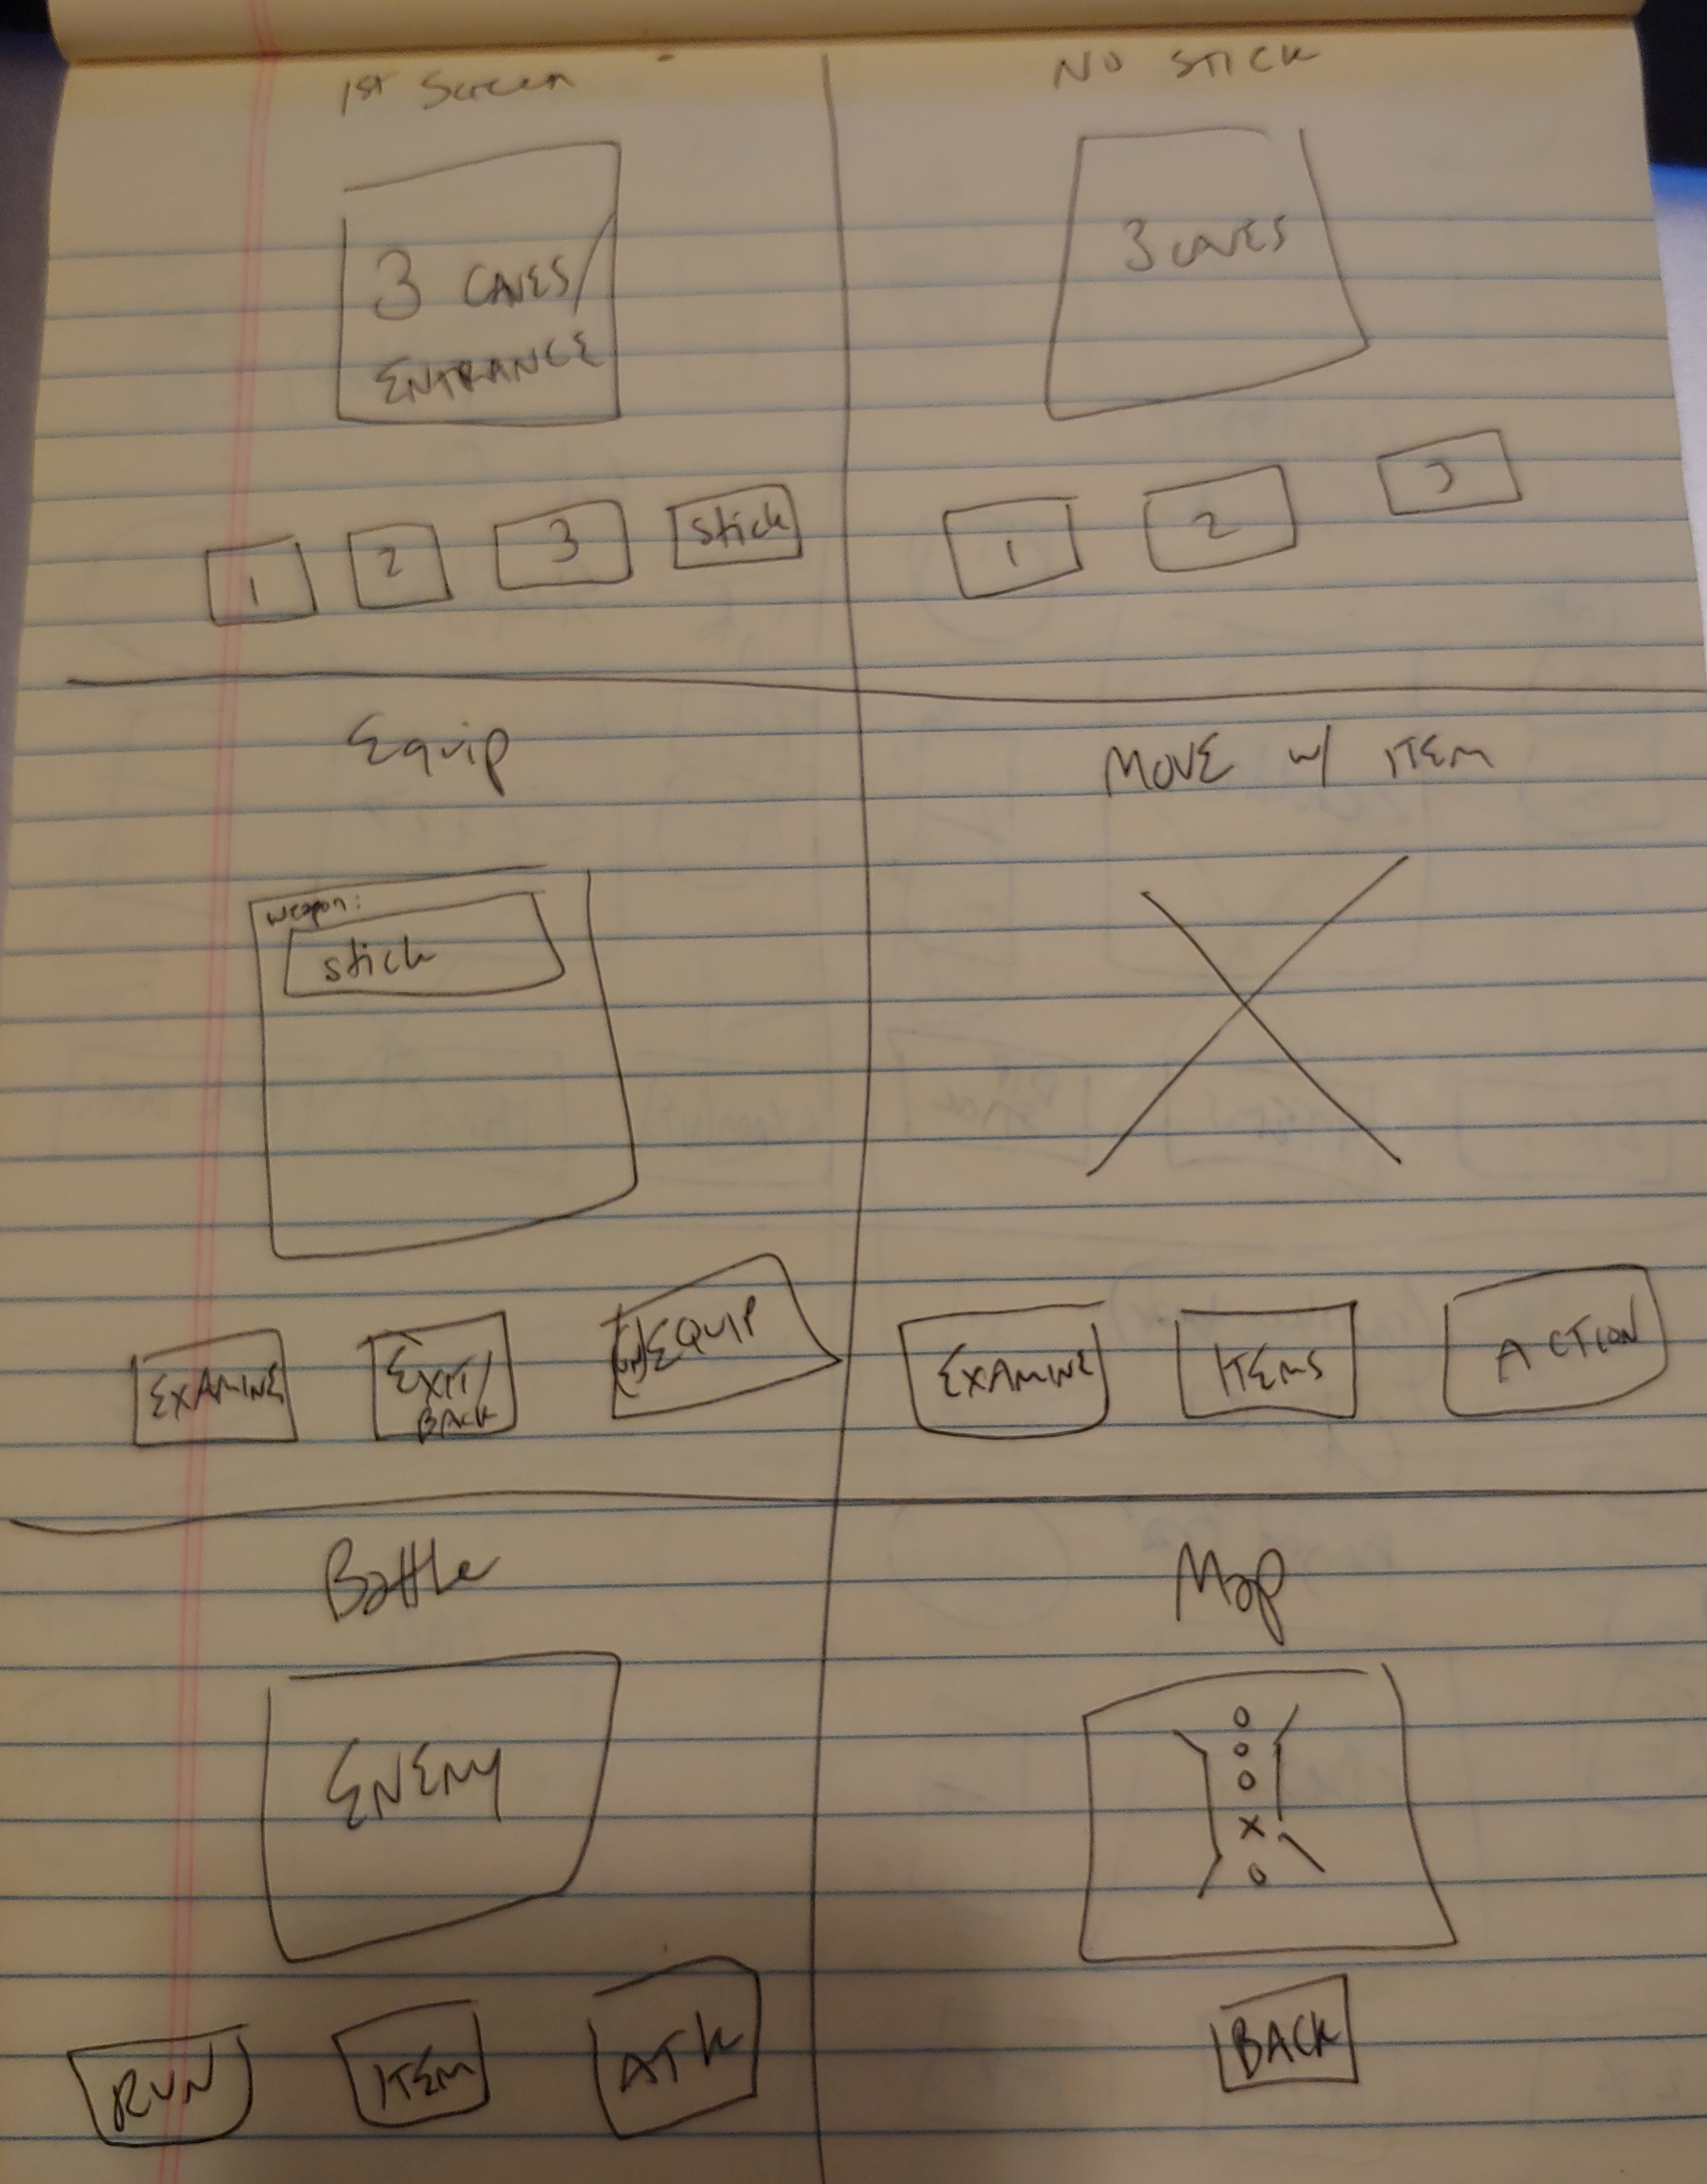 1st Screen
3 CAVES/
ENTRANCE
1 2 3 stick
NO STICK
3 CAVES
1 2 3
Equip
weapon:
stick
EXAMINE EXIT/
BACK
(UN)EQUIP
MOVE w/ ITEM
EXAMINE ITEMS ACTION
Battle
ENEMY
RUN ITEM ATK
Map
o
o
o
x
o
BACK